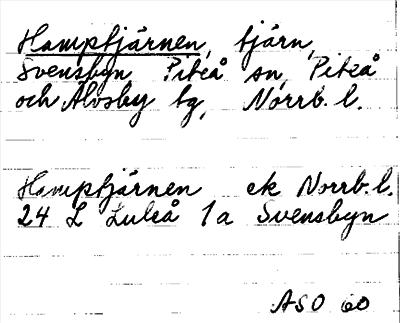 Hamptjärnen, tjärn,
Svensbyn, Piteå sn, Piteå
och Älvsby tg, Norrb. l.
Hamptjärnen ek Norrb. l.
24 L Luleå 1a Svensbyn
ASO 60